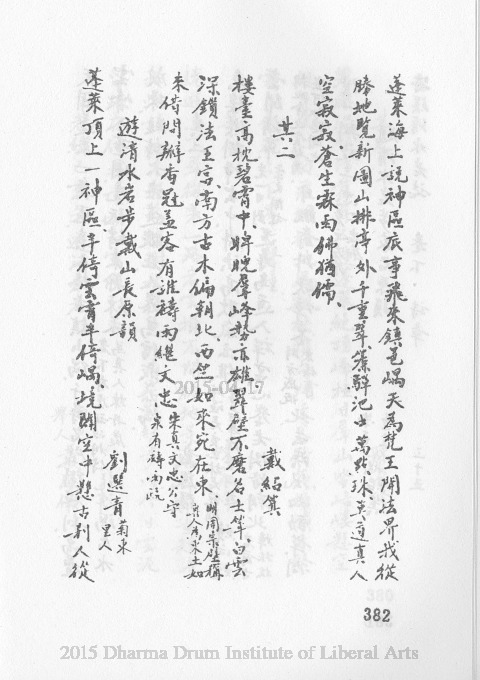 蓬萊海上說神區底事飛來鎮邑嵎天為梵王開法界我從
勝地覽新圖山排亭外千重翠簾醉池中萬點珠莫道真人
空寂寂蒼生霖雨佛猶儒
其二
戴紹箕
樓臺高枕碧霄中睥睨群峰勢亦雄翠壁不磨名士筆白雲
深鎖法王宮南方古木偏朝北西竺如來宛在東
來倚問瓣香冠蓋客有誰禱雨繼文忠朱真文忠公守泉有禱雨
遊清水岩步戴山長原韻
劉選青菊東里人
蓬萊頂上一神區半倚雲霄半倚嵎境闢空中懸古刹人從
382
2015-04-17
2015 Dharma Drum Institute of Liberal Arts